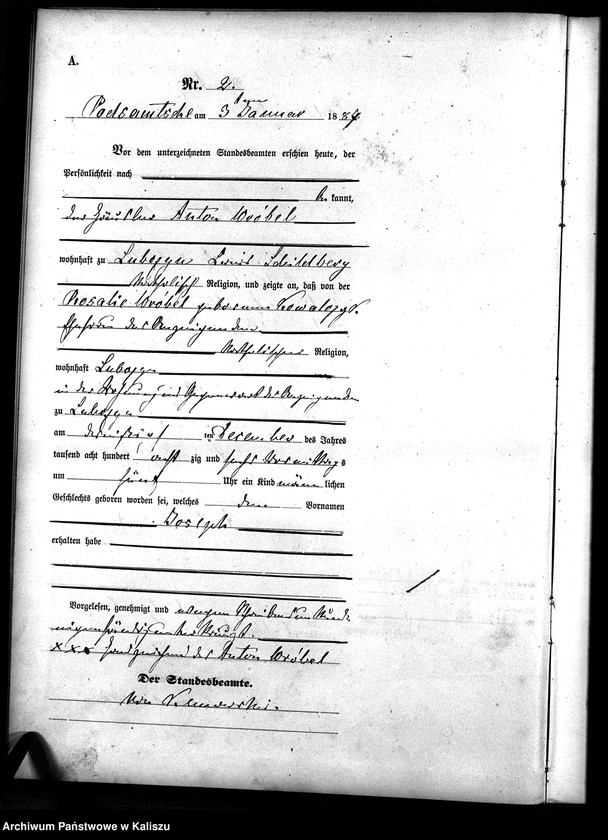 A.
Nr. 2.
Podsamtsche am 3 ten Januar 1887
Vor dem unterzeichneten Standesbeamten erschien heute, der
Persönlichkeit nach
be kannt,
der Häusler Anton Wróbel
wohnhaft zu Kreis Schildberg
katholisch Religion, und zeigte an, daß von der
Rosalie Wróbel geborenen
Ehefrau des Anzeigenden
katholischer Religion,
wohnhaft
in der Wohnung und Gegenwart des Anzeigenden
zu
am ten December des Jahres
tausend acht hundert acht zig und sechs Vormittags
um fünf Uhr ein Kind männ lichen
Geschlechts geboren worden sei, welches den Vornamen
Joseph
erhalten habe
Vorgelesen, genehmigt und wegen
XXX Handzeichen des Anton Wróbel
Der Standesbeamte.
Archiwum Państwowe w Kaliszu